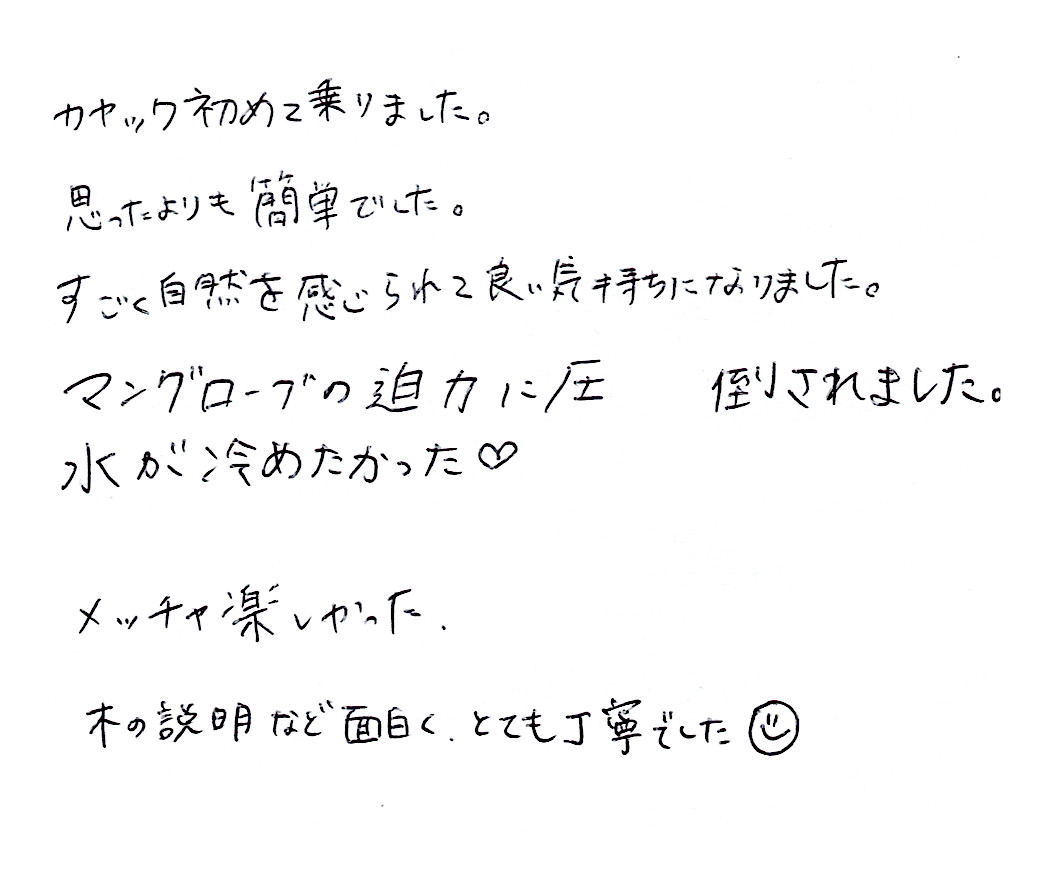 カヤック初めて乗りました。
思ったよりも簡単でした。
すごく自然を感じられて良い気持ちになりました。
マングローブの迫力に圧　倒されました。
水が冷めたかった♡
メッチャ楽しかった.
木の説明など面白く、とても丁寧でした☺